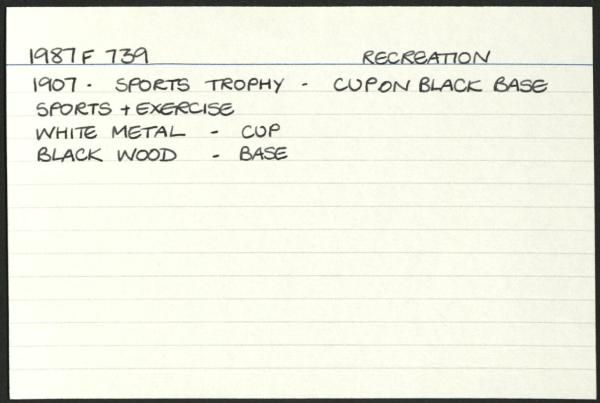 1987F 739 RECREATION
1907 - SPORTS TROPHY - CUP ON BLACK BASE
SPORTS + EXERCISE
WHITE METAL - CUP
BLACK WOOD - BASE